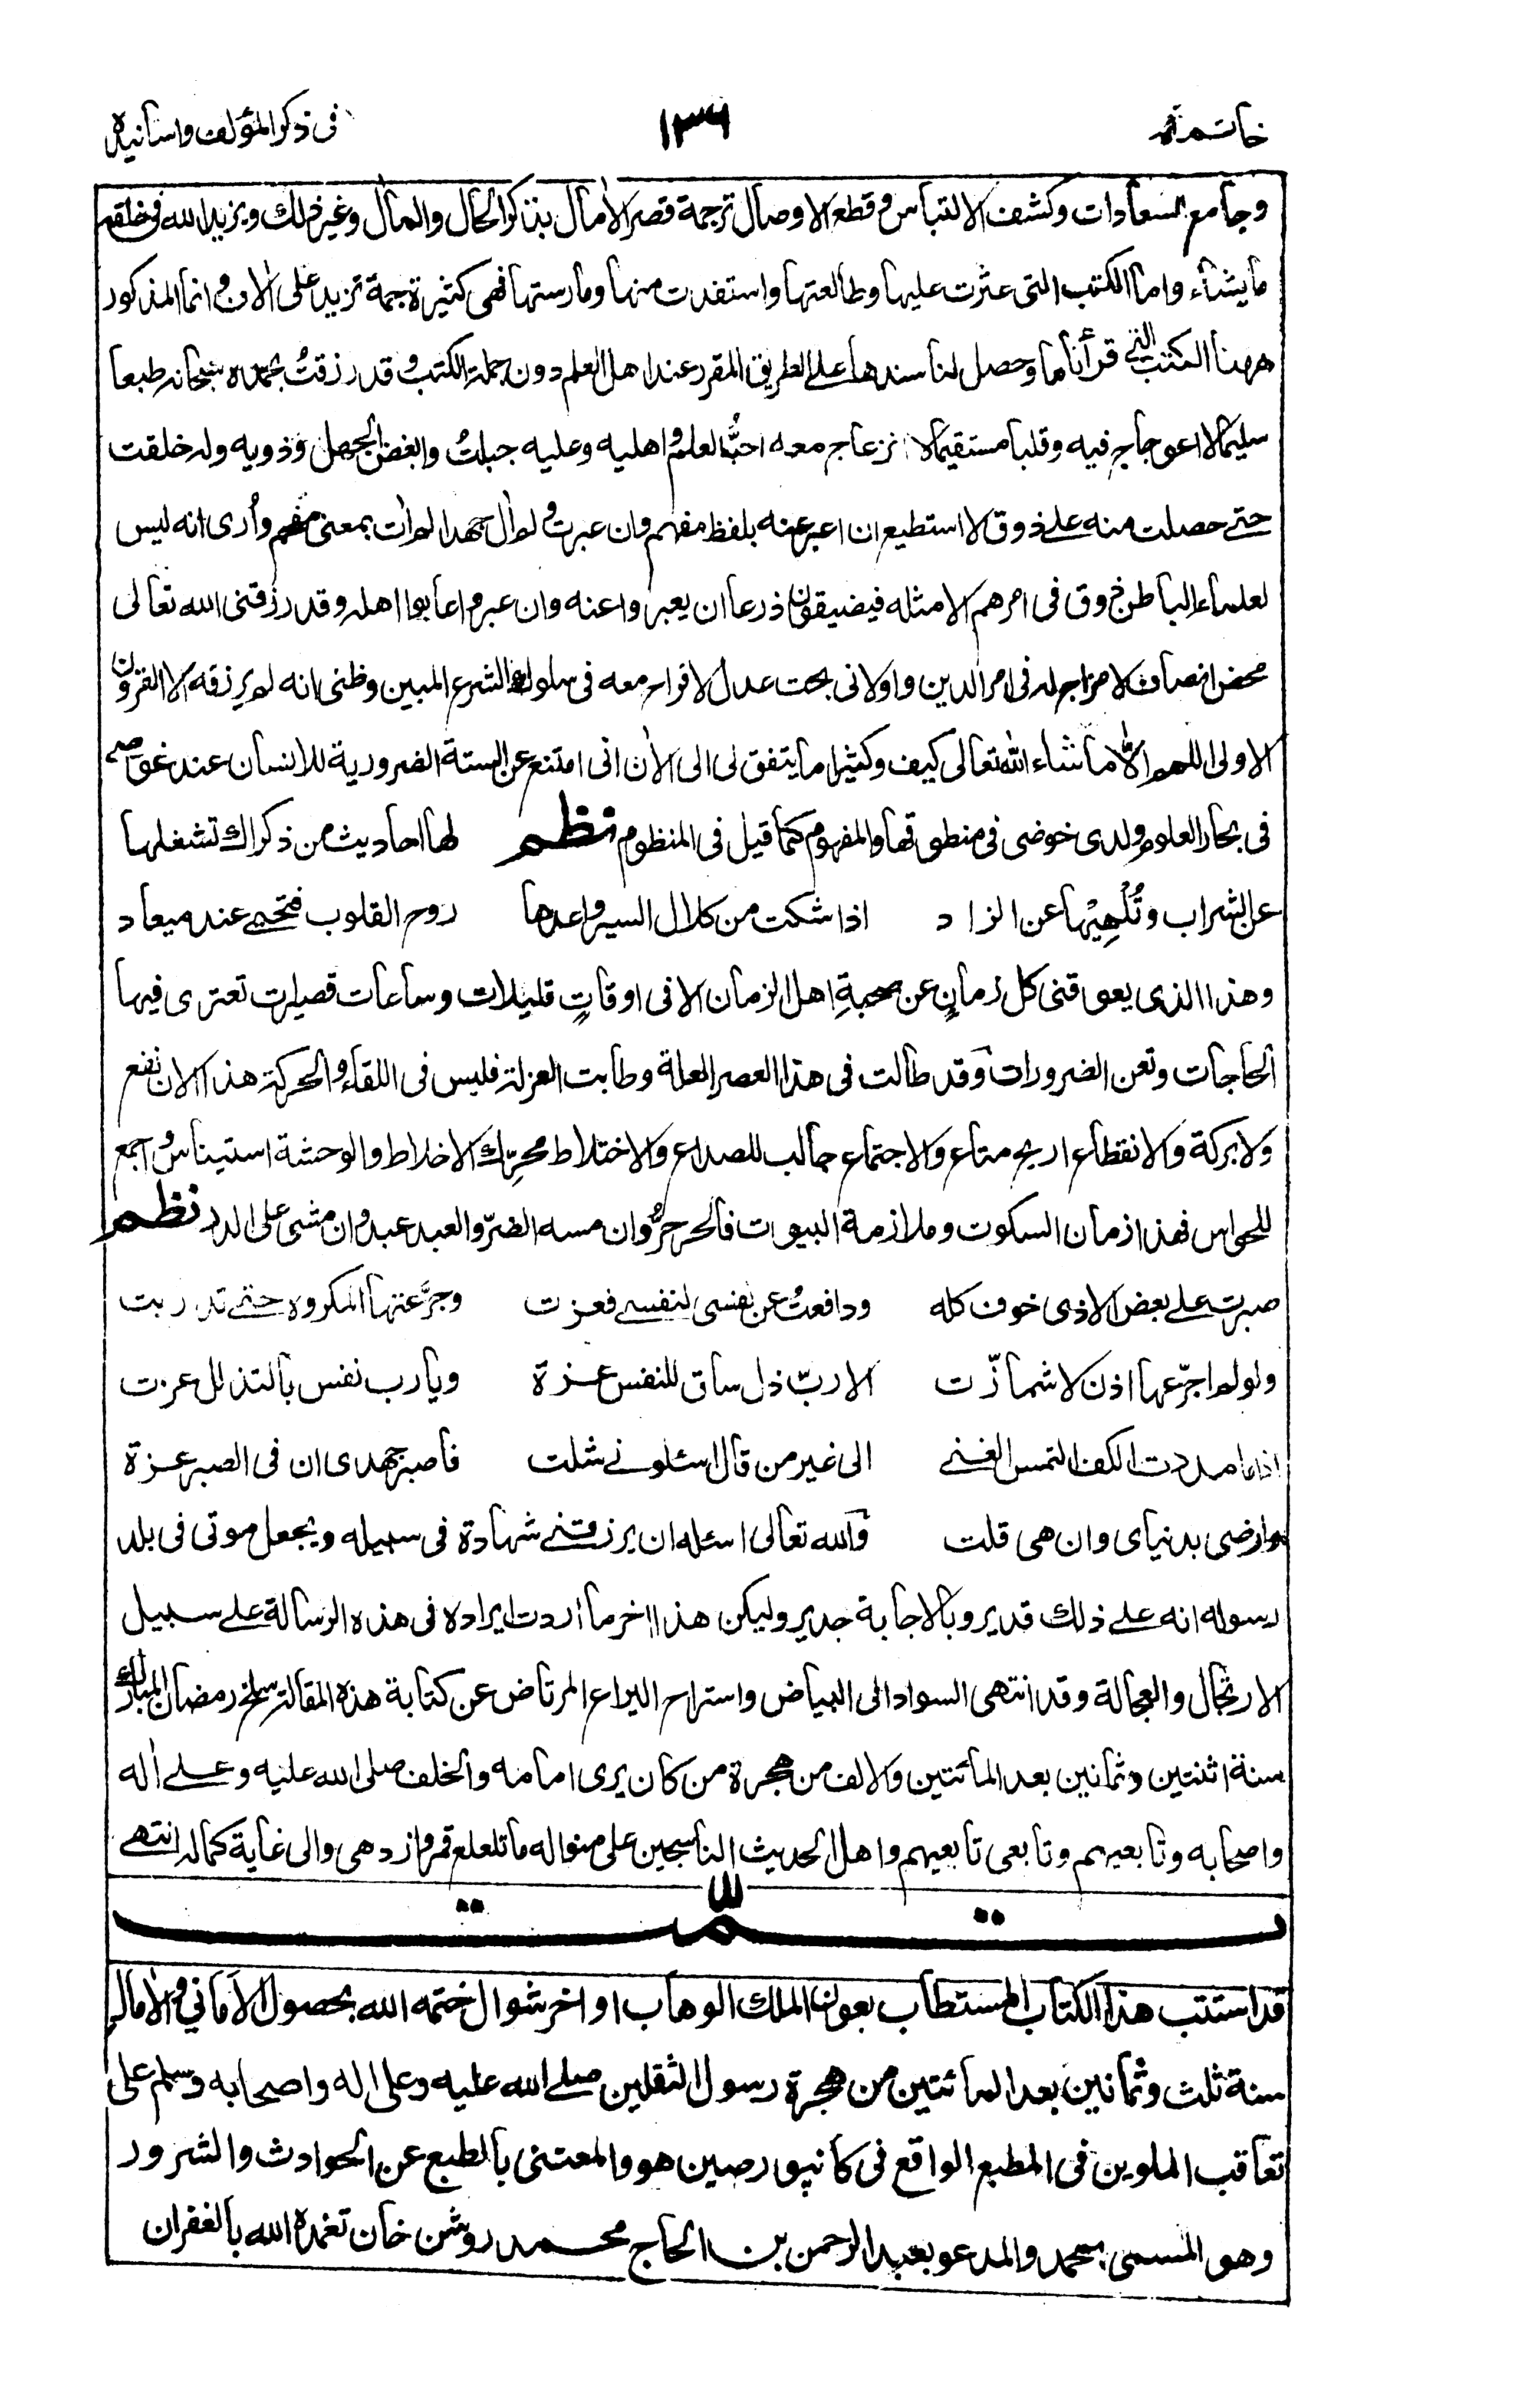 خاتمة ١٣٦ فى ذكر المؤلف واسانيده
وجامع السعادات وكشف الالتباس وقطع الاوصال ترجمة قصر الآمال بذكر الحال والمآل وغير ذلك ويزيد الله فى خلقه
ما يشاء واما الكتب التى عثرت عليها وطالعتها واستفدت منها ومارستها فهى كثيرة جمة تزيد على الآلاف وانما المذكور
ههنا الكتب التى قرأناها وحصل لنا سندها على الطريق المقرر عند اهل العلم دون جملة الكتب وقد رزقتُ بحمده سبحانه طبعا
سليما لا اعوجاج فيه وقلبا مستقيما لا انزعاج معه احبُّ العلم واهليه وعليه جبلتُ وابغض الجهل وذويه وله خلقت
حتى حصلت منه على ذوق لا استطيع ان اعبر عنه بلفظ مفهم وان عبرت ولو ال جهدا لم ات بمعنى مفهم وأرى انه ليس
لعلماء الباطن ذوق فى امرهم الا مثله فيضيقون ذرعا ان يعبروا عنه وان عبروا عابوا اهله وقد رزقنى الله تعالى
محض انصاف لا مزاج له فى امر الدين واولانى بحت عدل لا قراح معه فى سلوك الشرع المبين وظنى انه لم يرزقه الا القرون
الاولى اللهم الا ما شاء الله تعالى كيف وكثيرا ما يتفق لى الى الآن انى امتنع عن الستة الضرورية للانسان عند غوصى
فى بحار العلوم ولدى خوضى فى منطوقها والمفهوم كما قيل فى المنظوم نظم لها احاديث من ذكراك تشغلها
عن الشراب وتُلْهِيْها عن الزاد اذا شكت من كلال السير واعدها روح القلوب فتحيى عند ميعاد
وهذا الذى يعوقنى كل زمانٍ عن صحبةِ اهل الزمان الا فى اوقاتٍ قليلات وساعات قصيرات تعترى فيها
الحاجات وتعن الضرورات وقد طالت فى هذا العصر العلة وطابت العزلة فليس فى اللقاء والحركة هذا الان نفع
ولا بركة والانقطاع اربح متاع والاجتماع جالب للصداع والاختلاط محرّك الاخلاط والوحشة استيناسٌ اجمع
للحواس فهذا زمان السكوت وملازمة البيوت فالحر حرٌّ وان مسه الضرّ والعبد عبد وان مشى على الدر نظم
صبرت على بعض الاذى خوف كله ودافعتُ عن نفسى لنفسى فعزت وجرَّعتها المكروه حتى تدربت
ولو لم اجرّعها اذن لاشمأزّت الا ربّ ذل ساق للنفس عزة ويا رب نفس بالتذلل عزت
اذا ما مددت الكف التمس الغنى الى غير من قال اسئلونى شلت فاصبر جهدى ان فى الصبر عزة
وارضى بدنياى وان هى قلت والله تعالى اسئله ان يرزقنى شهادة فى سبيله ويجعل موتى فى بلد
رسوله انه على ذلك قدير وبالاجابة جدير وليكن هذا اخر ما اردت ايراده فى هذه الرسالة على سبيل
الارتجال والعجالة وقد انتهى السواد الى البياض واستراح اليراع المرتاض عن كتابة هذه المقالة سلخ رمضان المبارك
سنة اثنتين وثمانين بعد المأئتين والالف من هجرة من كان يرى امامه والخلف صلى الله عليه وعلى اله
واصحابه وتابعيهم وتابعى تابعيهم واهل الحديث الناسجين على منواله ما تلعلع قمر وازدهى والى غاية كماله انتهى
تمت
قد استتب هذا الكتاب المستطاب بعون الملك الوهاب اواخر شوال ختمه الله بحصول الامانى والآمال
سنة ثلث وثمانين بعد المأئتين من هجرة رسول الثقلين صلى الله عليه وعلى اله واصحابه وسلم على
تعاقب الملوين فى المطبع الواقع فى كانپور صين هو والمعتنى بالطبع عن الحوادث والشرور
وهو المسمى بمحمد والمدعو بعبد الرحمن بن الحاج محمد روشن خان تغمده الله بالغفران